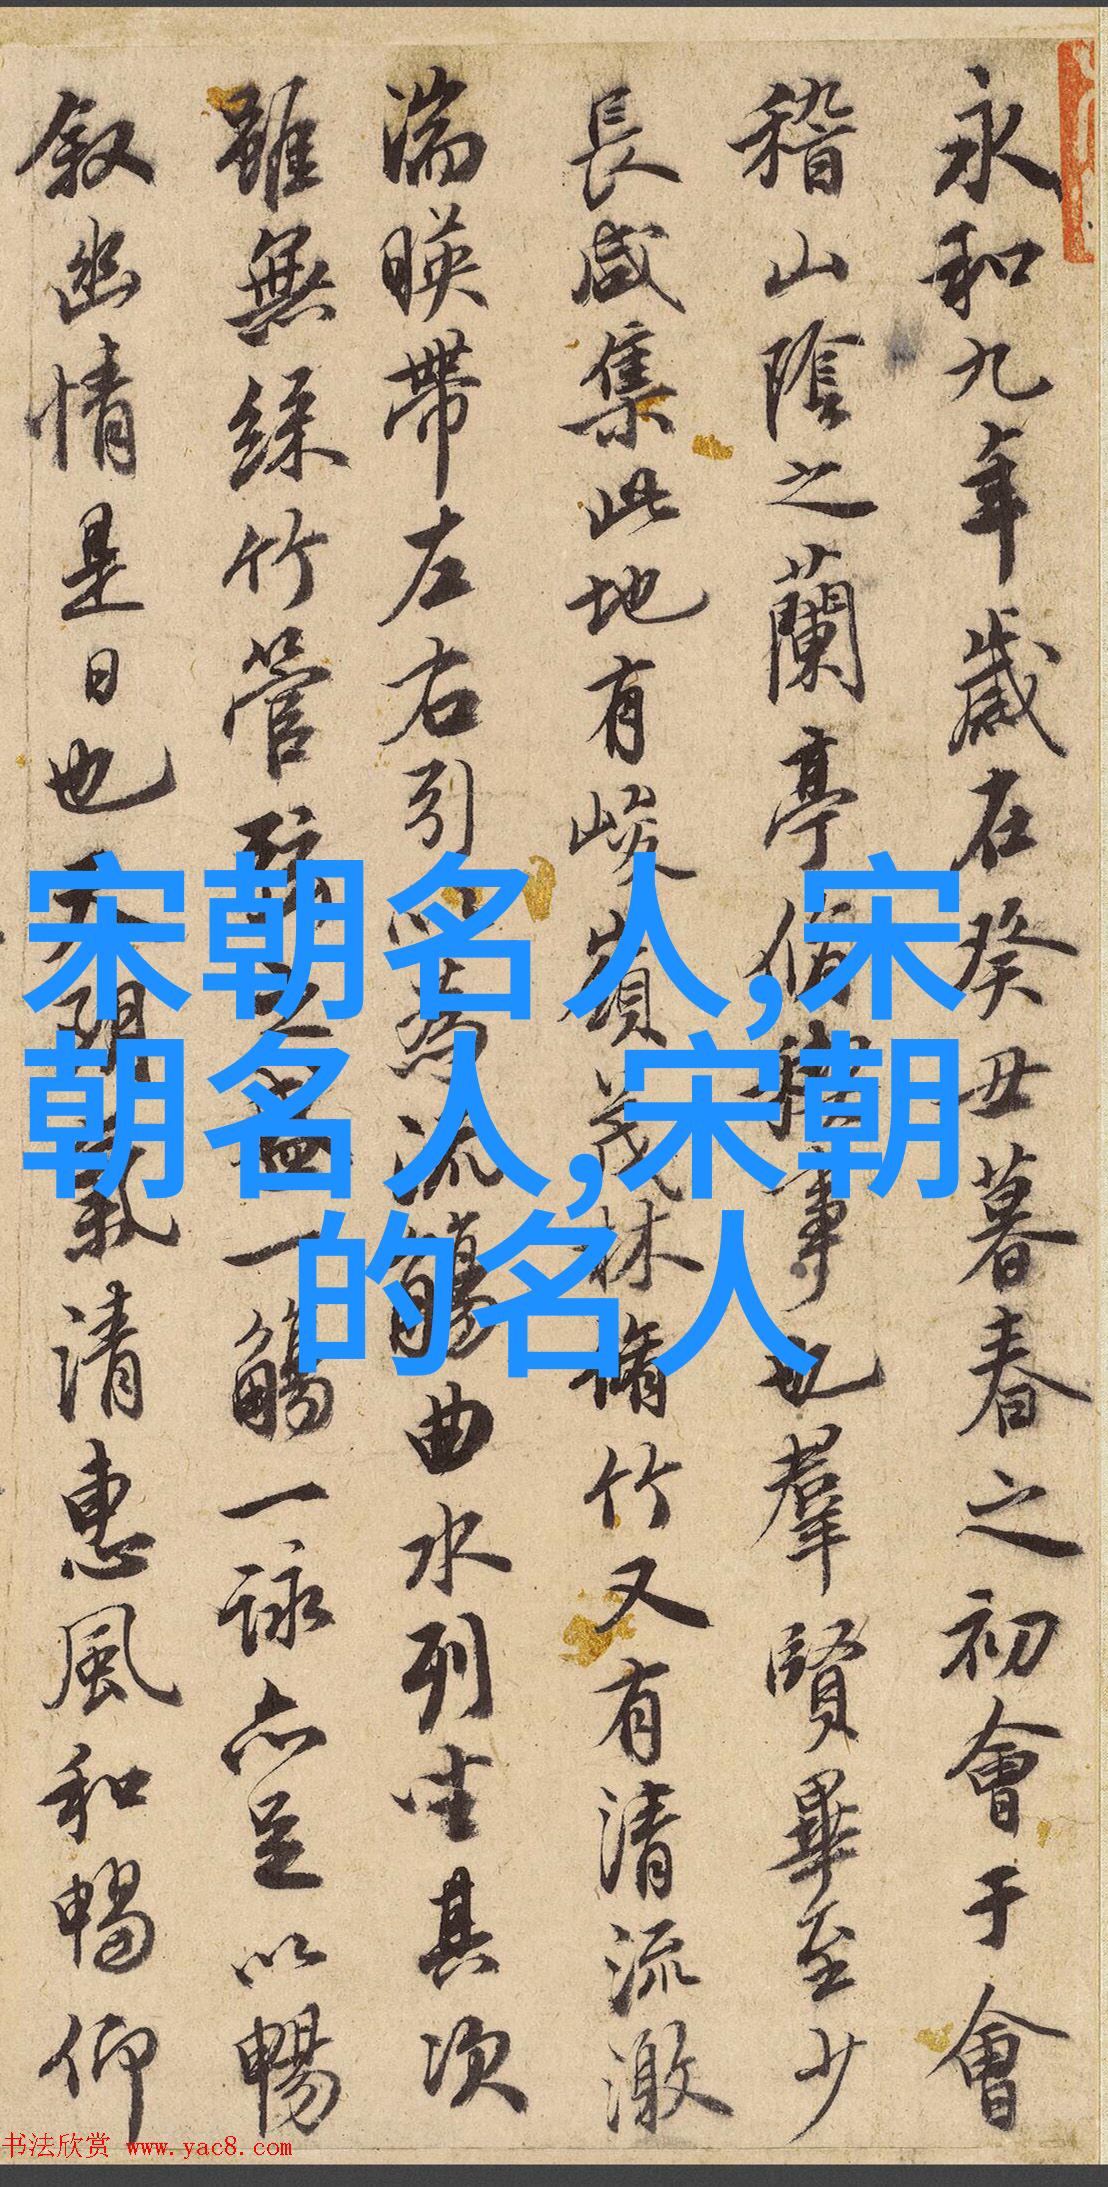 永和九年歲在癸丑暮春之初會于會
稽山陰之蘭亭脩稧事也羣賢畢至少
長咸集此地有峻嶺茂林脩竹又有清流激
湍暎帶左右引以為流觴曲水列坐其次
雖無絲竹管弦之盛一觴一詠亦足以暢
叙幽情是日也天朗氣清惠風和暢仰
宋朝名人,宋
朝名人,宋朝
的名人
书法欣赏 www.yac8.com